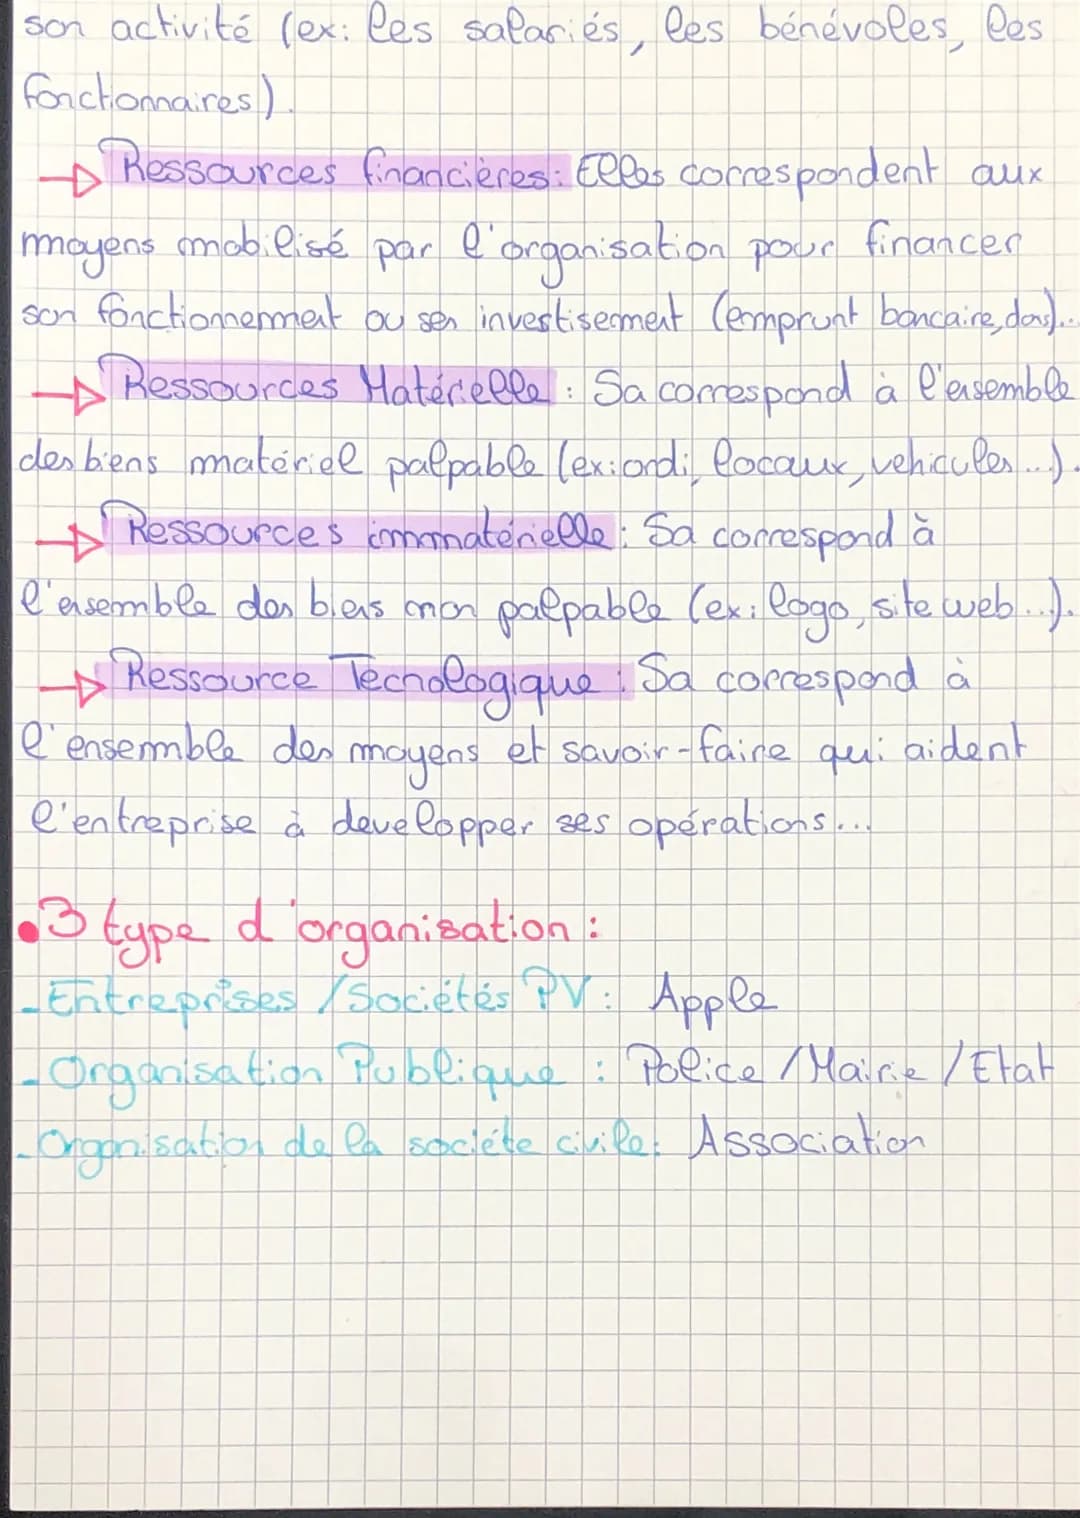 son activité (ex: les salariés, les bénévoles, les
fonctionnaires).
Ressources financières: Elles correspondent aux
moyens mobilisé par l'organisation pour financer
son fonctionnement ou ses investisement (emprunt bancaire, dons)...
Ressources Matérielle : Sa correspond à l'ensemble
des biens matériel palpable (ex: ordi, locaux, vehicules...).
Ressources immatérielle : Sa correspond à
l'ensemble des biens non palpable (ex: logo, site web...).
Ressource Tecnologique : Sa correspond à
l'ensemble des moyens et savoir-faire qui aident
l'entreprise à developper ses opérations...
• 3 type d'organisation :
- Entreprises / Sociétés PV : Apple
- Organisation Publique : Police / Mairie / Etat
- Organisation de la sociéte civile: Association